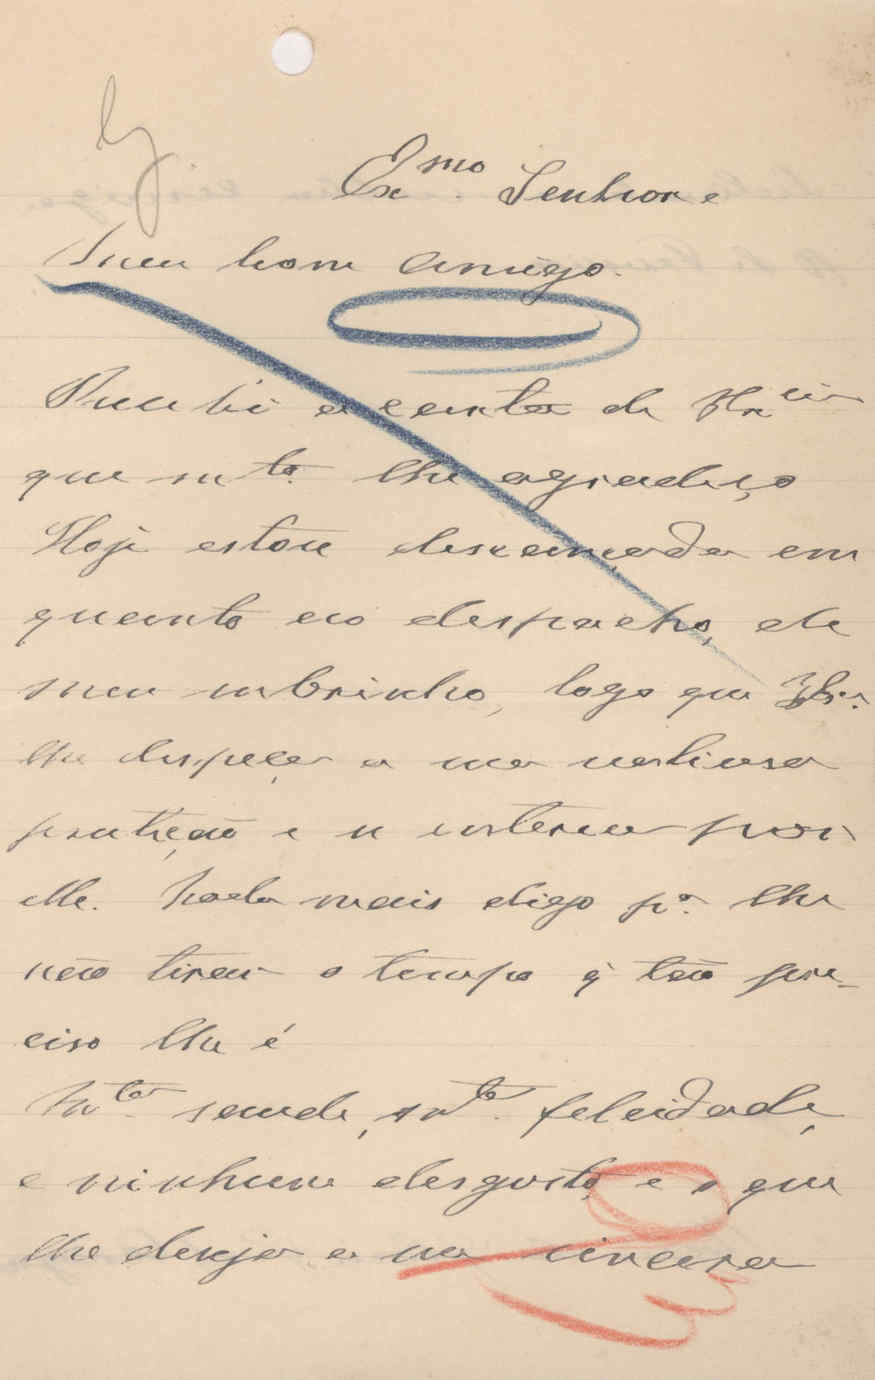 Exmo Senhor e
Meu bom amigo.
Recebi a carta de V. Excia
que mta lhe agradeço
Hoje estou descançada em
quanto ao despacho, de
meu sobrinho, logo que
lhe dispeça a sua valiosa
proteção e se interesse por
elle. Nada mais digo pa. lhe
não tirar o tempo q̃ tão pre-
ciso lhe é
Mta. saude, mta. felicidade,
e ninhum desgosto, é o que
lhe deseja a sua sincera